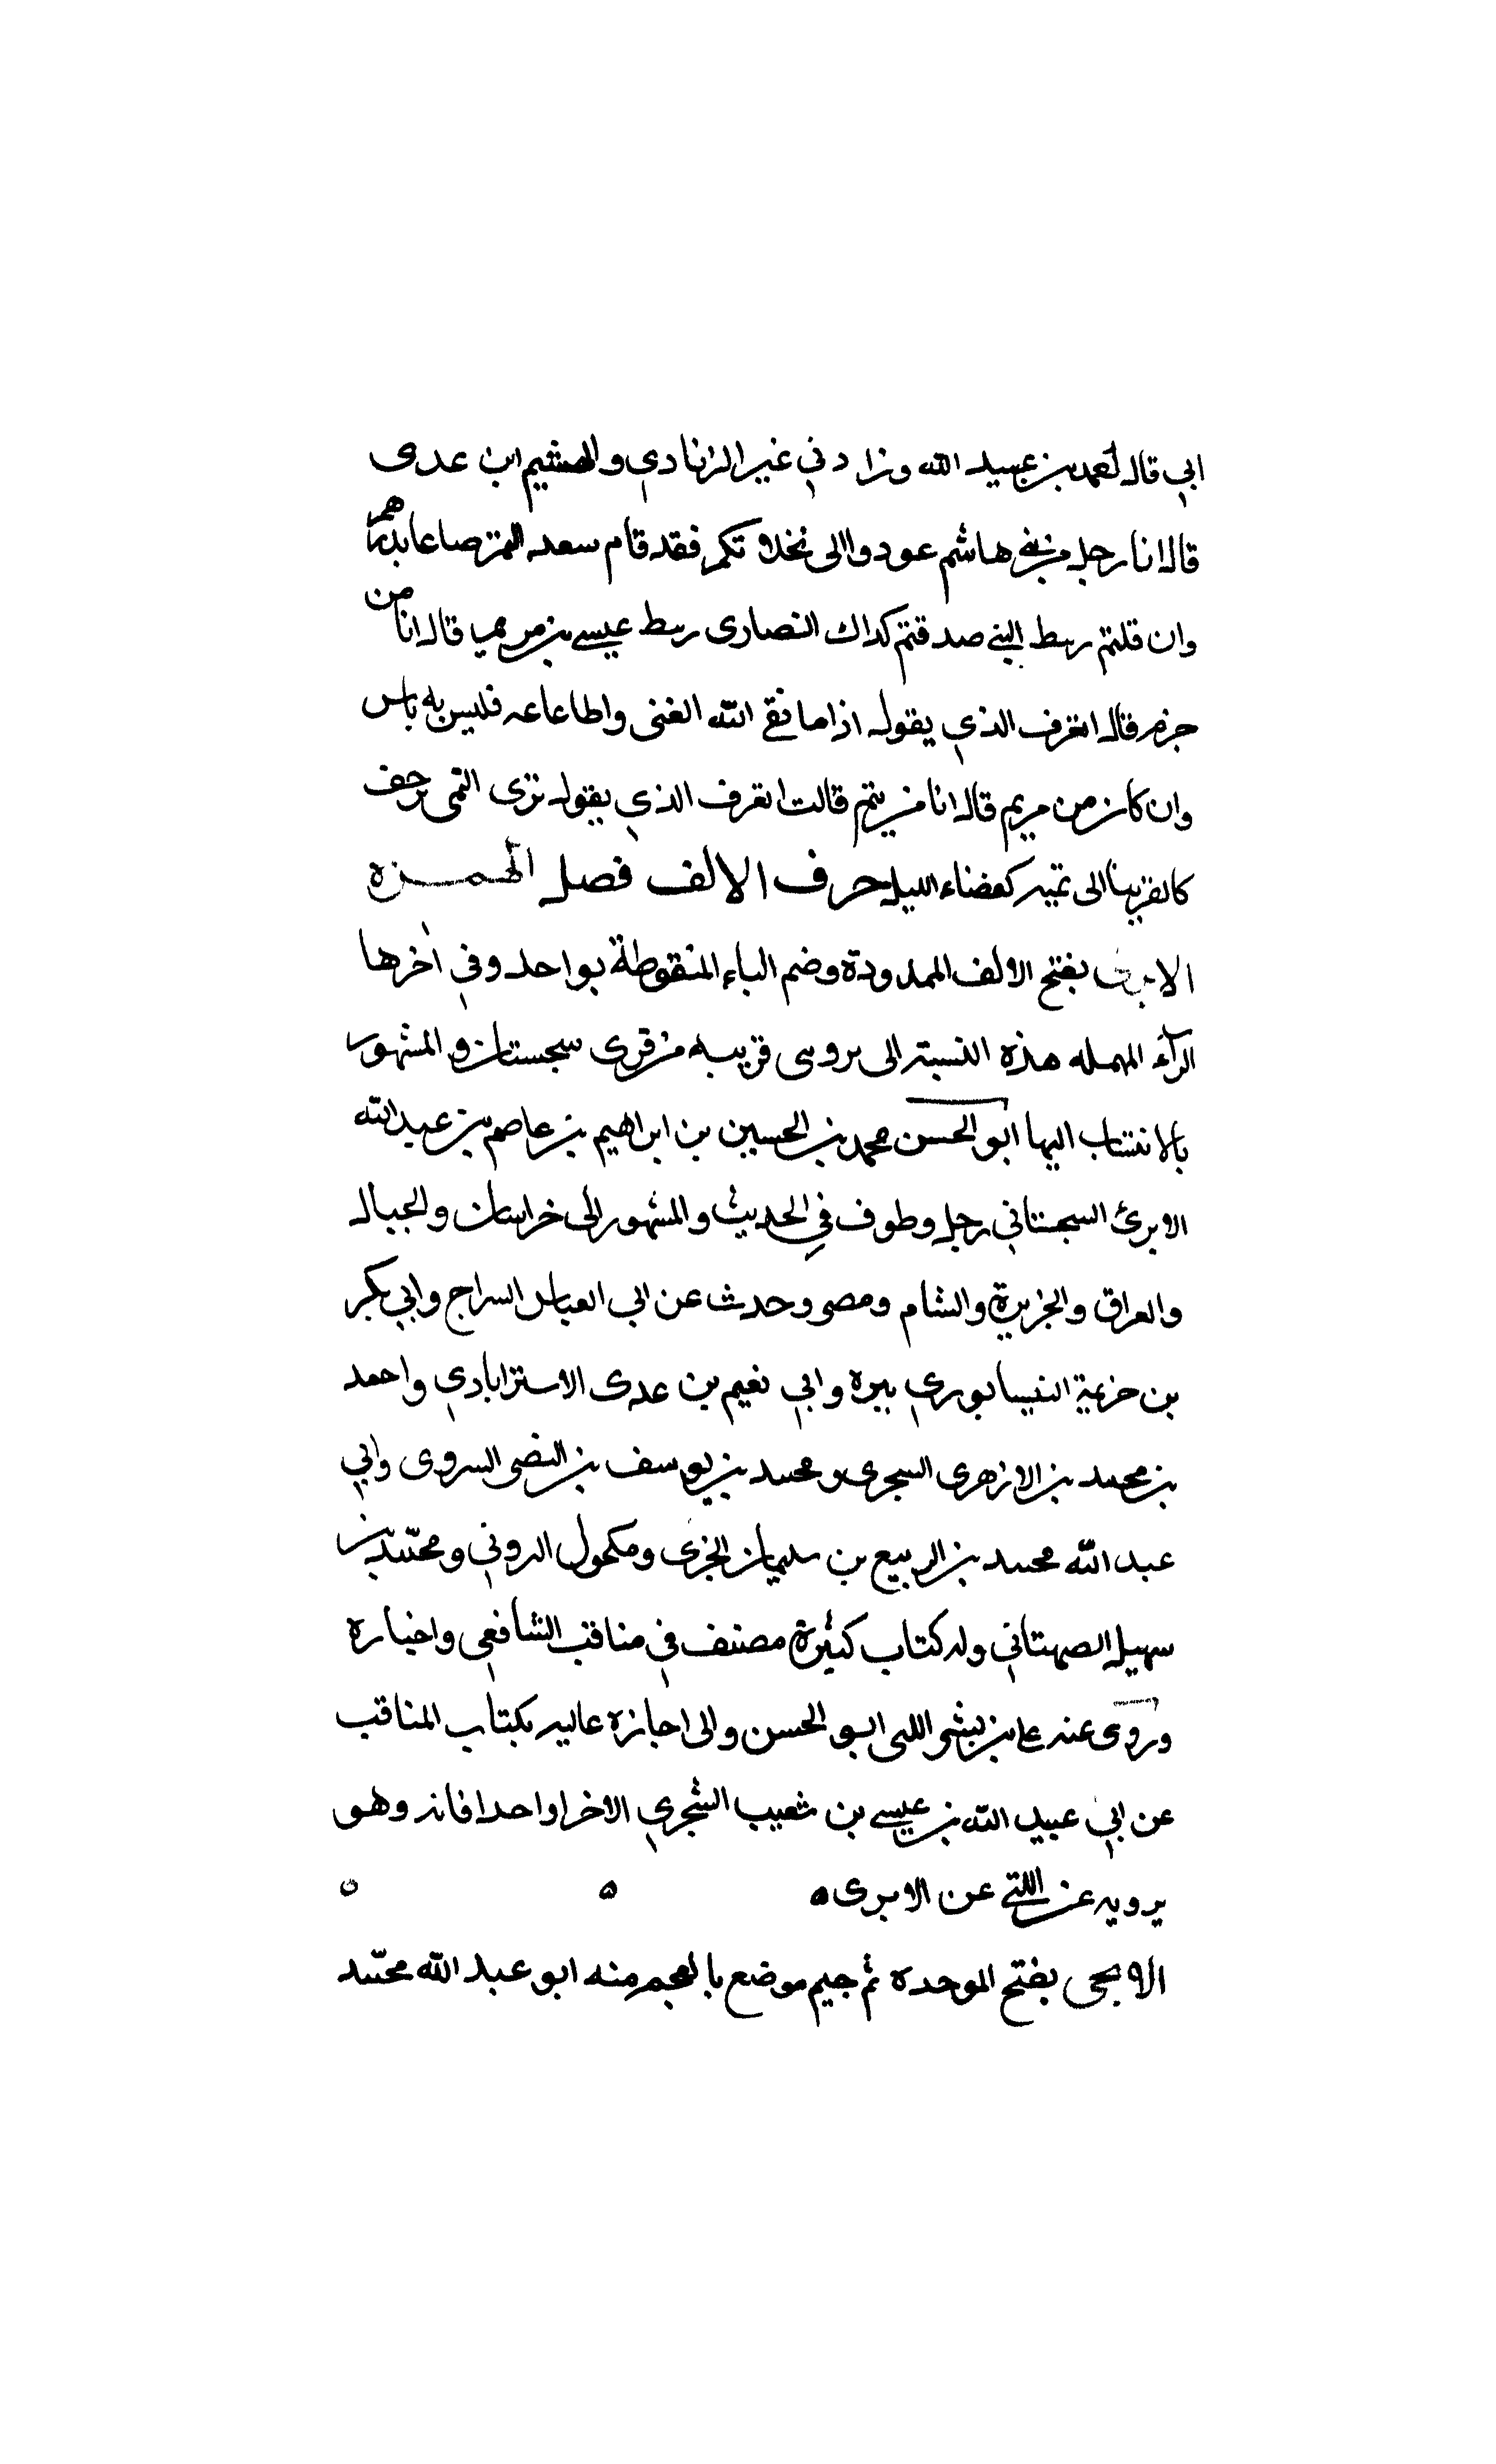 ابي قال لعمد بن عبيد الله وزادني غير الزنادي والهشيم ابن عدى
قال انا رجل من بني هاشم عودوا الى نخلاتكم فقد قام سعد التمر صاعا بدرهم
وان قلتم رهط النبي صدقتم كداك النصارى رهط عيسى بن مريم قال انا من
جزم قال اتعرف الذي يقول اذا ما نقي الله الغنى واطاعاعه فليس به باس
وان كان من مريم قال انا من يتم قالت اتعرف الذي يقول ترى التمى يرجف
كالقربنا الى تميه كعضاء الليل حرف الالف فصل الهمزة
الابرى بفتح الالف الممدودة وضم الباء المنقوطة بواحد وفي اخرها
الرآء المهمله هذه النسبة الى بروسى قريبه من قرى سجستان والمشهور
بالانتساب اليها ابو الحسن محمد بن الحسين بن ابراهيم بن عاصم بن عبد الله
الابرئ السجستاني رجل وطوف في الحديث والمشهور الى خراسان والجبال
والعراق والجزيرة والشام ومصر وحدث عن ابي العباس السراج وابي بكر
بن خزيمة النيسابوري بيره وابي نعيم بن عدى الاسترابادي واحمد
بن محمد بن الازهرى السجرى ومحمد بن يوسف بن النضر السروى وابي
عبد الله محمد بن الربيع بن سليمان الجزى ومكحول الروني ومحمد بن
سهيل الصهتاني وله كتاب كثيرة مصنف في مناقب الشافعي واخباره
وروى عنه على بن بشر اللى ابو الحسن والى اجازه عاليه بكتاب المناقب
عن ابي عبيد الله بن عيسى بن شعيب الشجري الاخر اواحدا فانه وهو
يرويه عن اللتي عن الابرى ه ه ه
الابجى بفتح الموحده ثم جيم موضع بالعجم منه ابو عبد الله محمد